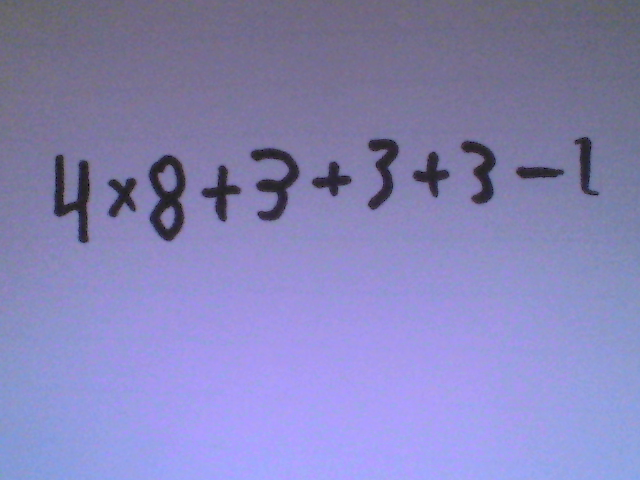 4×8+3+3+3-1